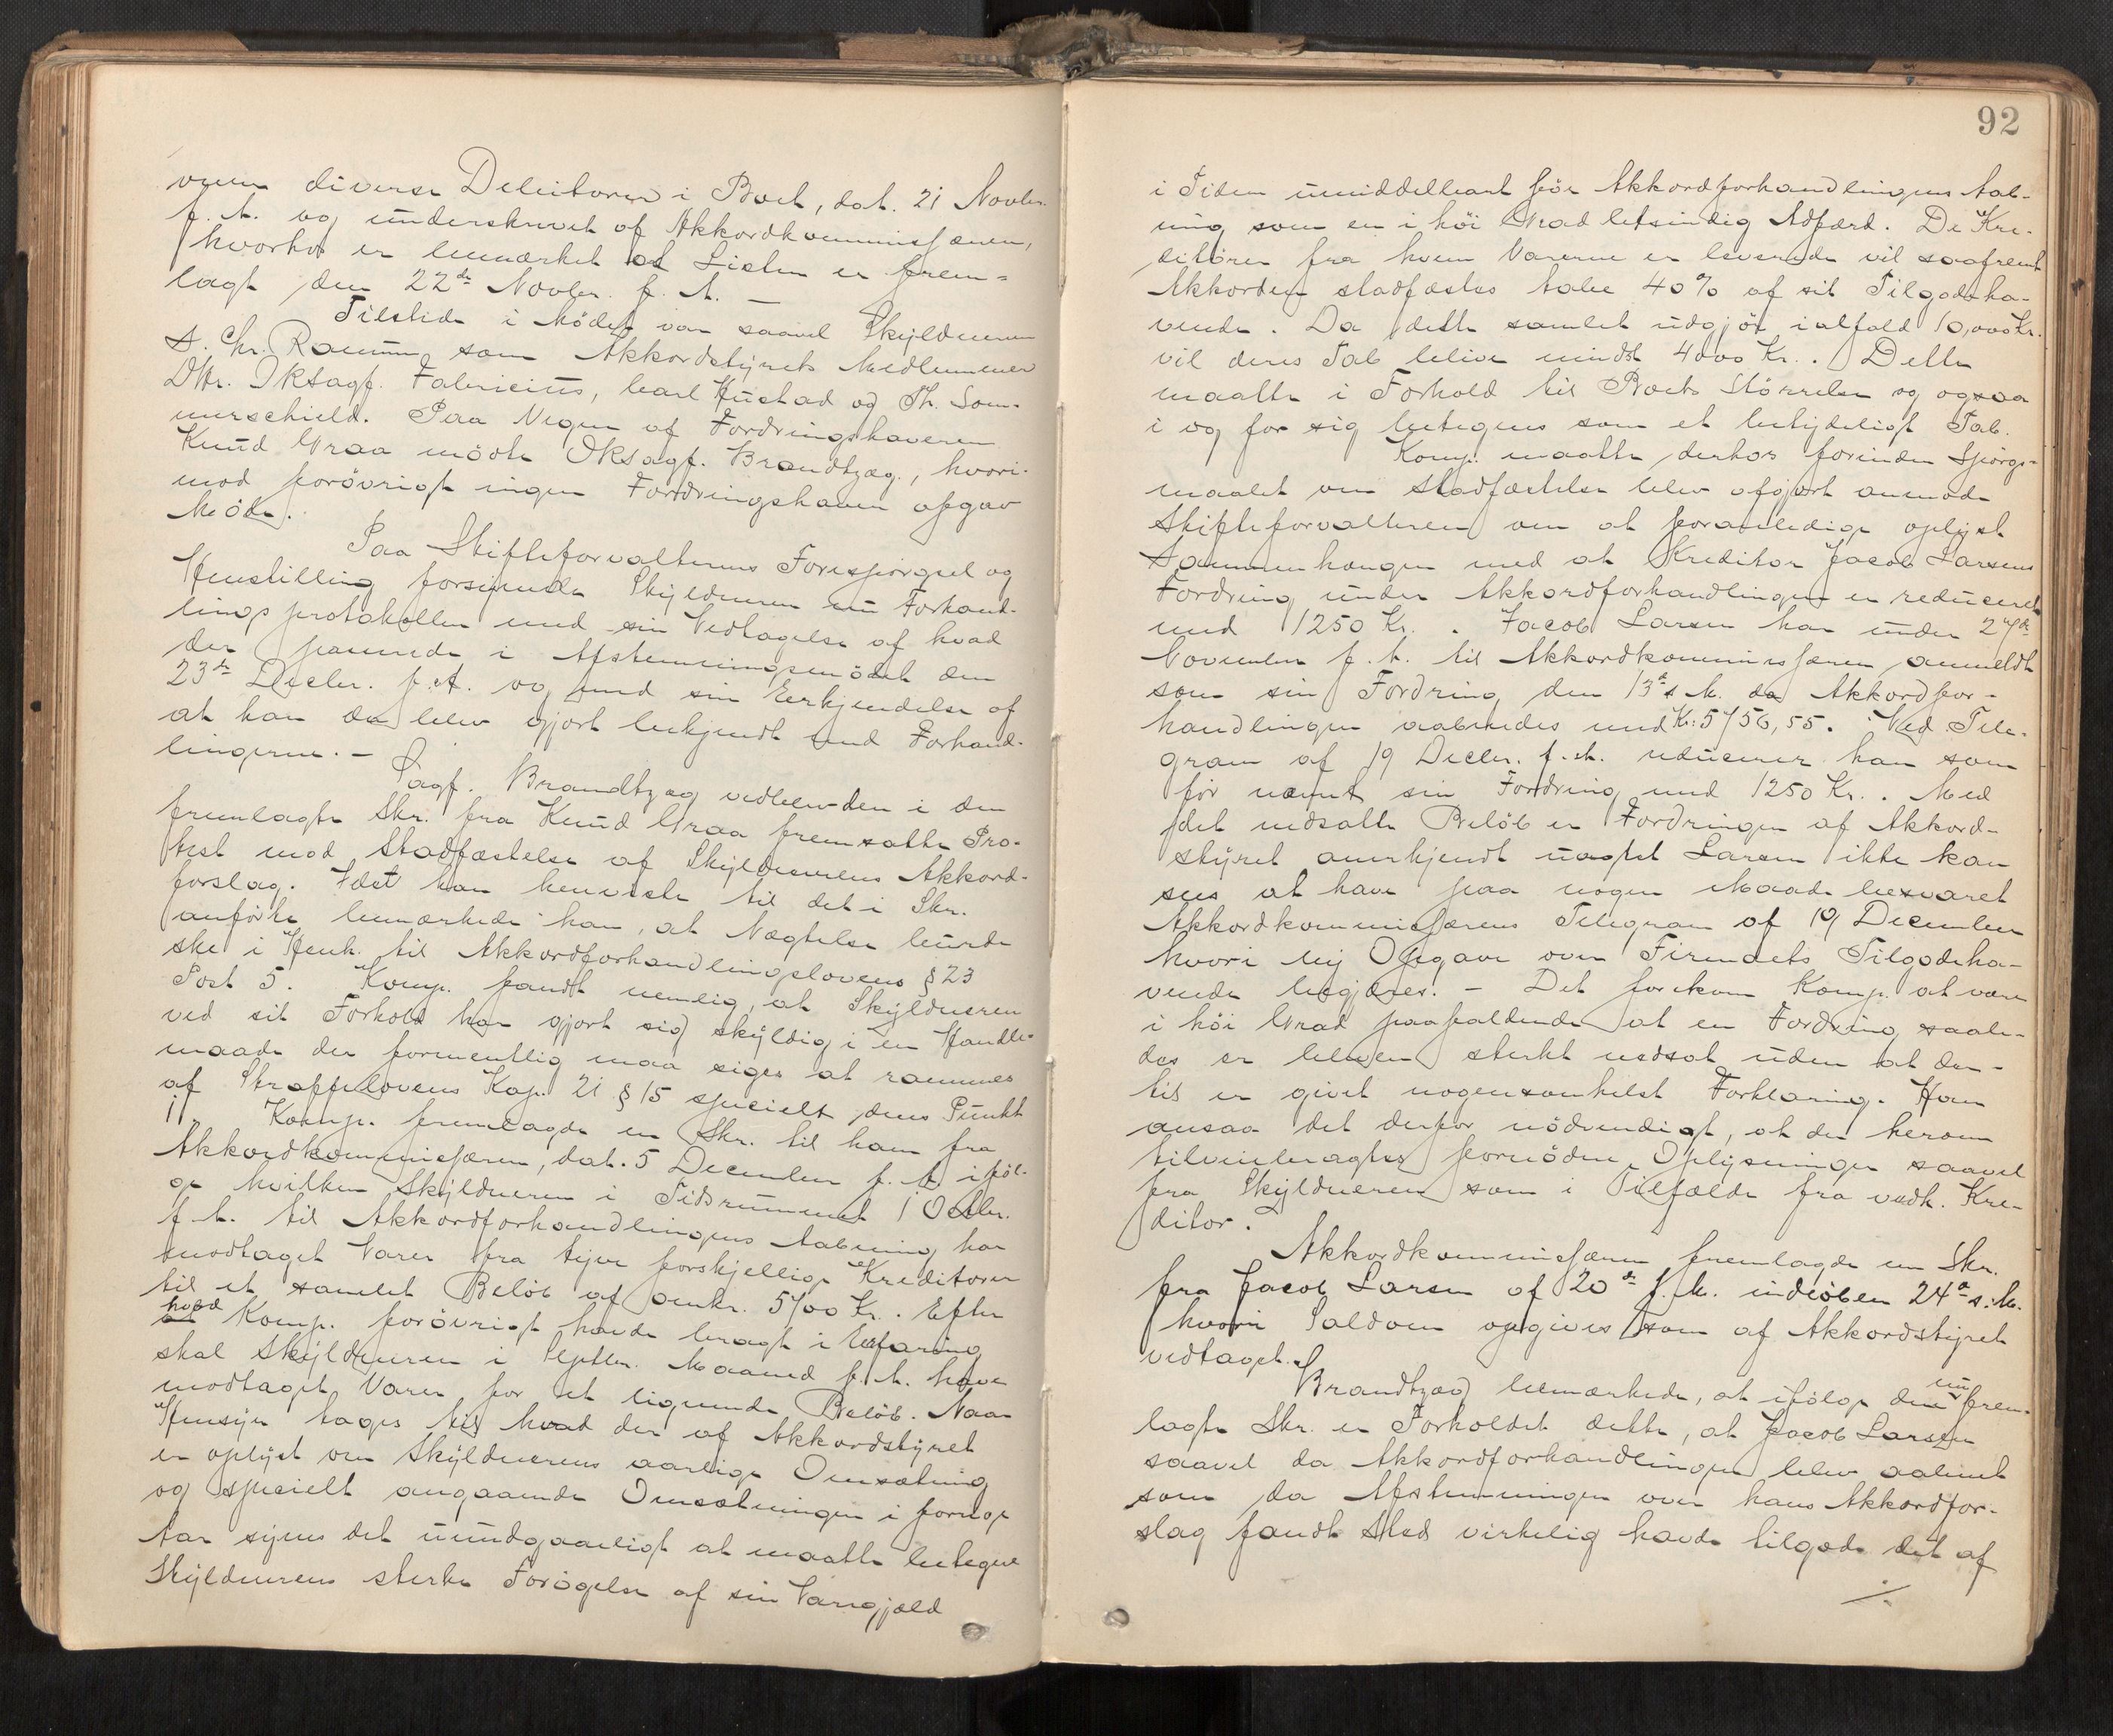 over diverse Debitorer i Boet, dat. 21 Novbr.
f. A. og underskrevet af Akkordkommissæren,
hvorhos er bemærket at Listen er frem-
lagt den 22de Novbr. f. A. —
Tilstede i Mödet var saavel Skyldneren
A. Chr. Raum som Akkordstyrets Medlemmer
DHr. Oksagf. Fabricius, Carl Hustad og Th. Som-
merschield. Paa Vegne af Fordringshaveren
Knud Graa mödte Oksagf. Brandtzæg, hvori-
mod forövrigt ingen Fordringshaver afgav
Möde.
Paa Skifteforvalterens Forespörgsel og
Henstilling forsynede Skyldneren nu Forhand-
lingsprotokollen med sin Vedtagelse af hvad
der passerede i Afstemningsmödet den
23de Decbr. f. A. og med sin Erkjendelse af
at han da blev gjort bekjendt med Forhand-
lingerne. —
Sagf. Brandtzæg vedblev den i den
fremlagte Skr. fra Knud Graa fremsatte Pro-
test mod Stadfæstelse af Skyldnerens Akkord-
forslag. Idet han henviste til det i Skr.
anförte bemærkede han, at Nægtelse burde
ske i Henh. til Akkordforhandlingslovens § 23
Post 5. Komp. fandt nemlig, at Skyldneren
ved sit Forhold har gjort sig skyldig i en Handle-
maade der formentlig maa siges at rammes
af Straffelovens Kap. 21 § 15 specielt dens Punkt
1. Komp. fremlagde en Skr. til ham fra
Akkordkommissæren, dat. 5 December f. A. iföl-
ge hvilken Skyldneren i Tidsrummet 1 Octbr.
f. A. til Akkordforhandlingens Aabning har
modtaget Varer fra tyve forskjellige Kreditorer
til et samlet Belöb af omkr. 5700 Kr. Efter
hvad Komp. forövrigt havde bragt i Erfaring
skal Skyldneren i Septbr. Maaned f. A. have
modtaget Varer for et lignende Belöb. Naar
Hensyn tages til hvad der af Akkordstyret
er oplyst om Skyldnerens aarlige Omsætning
og specielt angaaende Omsætningen i forrige
Aar synes det uundgaaeligt at maatte betegne
Skyldnerens sterke Forögelse af sin Varegjæld
92
i Tiden umiddelbart för Akkordforhandlingens Aab-
ning som en i höi Grad letsindig Adfærd. De Kre-
ditorer fra hvem Varerne er leverede vil saafremt
Akkorden stadfæstes tabe 40% af sit Tilgodeha-
vende. Da dette samlet udgjör ialfald 10,000 Kr.
vil deres Tab blive mindst 4000 Kr. Dette
maatte i Forhold til Boets Störrelse og ogsaa
i og for sig betegnes som et betydeligt Tab.
Komp. maatte derhos forinden Spörgs-
maalet om Stadfæstelse blev afgjort anmode
Skifteforvalteren om at foranledige oplyst
Sammenhængen med at Kreditor Jacob Larsens
Fordring under Akkordforhandlingen er reduceret
med 1250 Kr. Jacob Larsen har under 27de
November f. A. til Akkordkommissæren anmeldt
som sin Fordring den 13de s. M. da Akkordfor-
handlingen aabnedes med Kr: 5756,55. Ved Tele-
gram af 19 Decbr. f. A. reducerer han som
för nævnt sin Fordring med 1250 Kr. Med
det nedsatte Belöb er Fordringen af Akkord-
styret anerkjendt uagtet Larsen ikke kan
sees at have paa nogen Maade besvaret
Akkordkommissærens Telegram af 19 December
hvori ny Opgave over Firmaets Tilgodeha-
vende begjæres. — Det forekom Komp. at være
i höi Grad paafaldende at en Fordring saale-
des er bleven sterkt nedsat uden at der-
til er givet nogensomhelst Forklaring. Han
ansaa det derfor nödvendigt, at der herom
tilveiebragtes fornödne Oplysninger saavel
fra Skyldneren som i Tilfælde fra vedk. Kre-
ditor.
Akkordkommissæren fremlagde en Skr.
fra Jacob Larsen af 20de f. M. indlöben 24de s. M.
hvori Saldoen opgives som af Akkordstyret
vedtaget.
Brandtzæg bemærkede, at ifölge den nu frem-
lagte Skr. er Forholdet dette, at Jacob Larsen
saavel da Akkordforhandlingen blev aabnet
som da Afstemningen over hans Akkordfor-
slag fandt Sted virkelig havde tilgode det af
./.